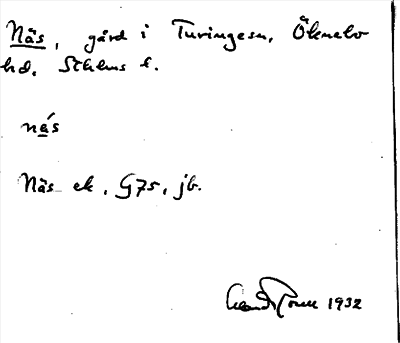 Näs, gård i Turinge sn, Öknebo
hd, Sthlms l.
nä́s
Näs ek, G75, jb.
1932